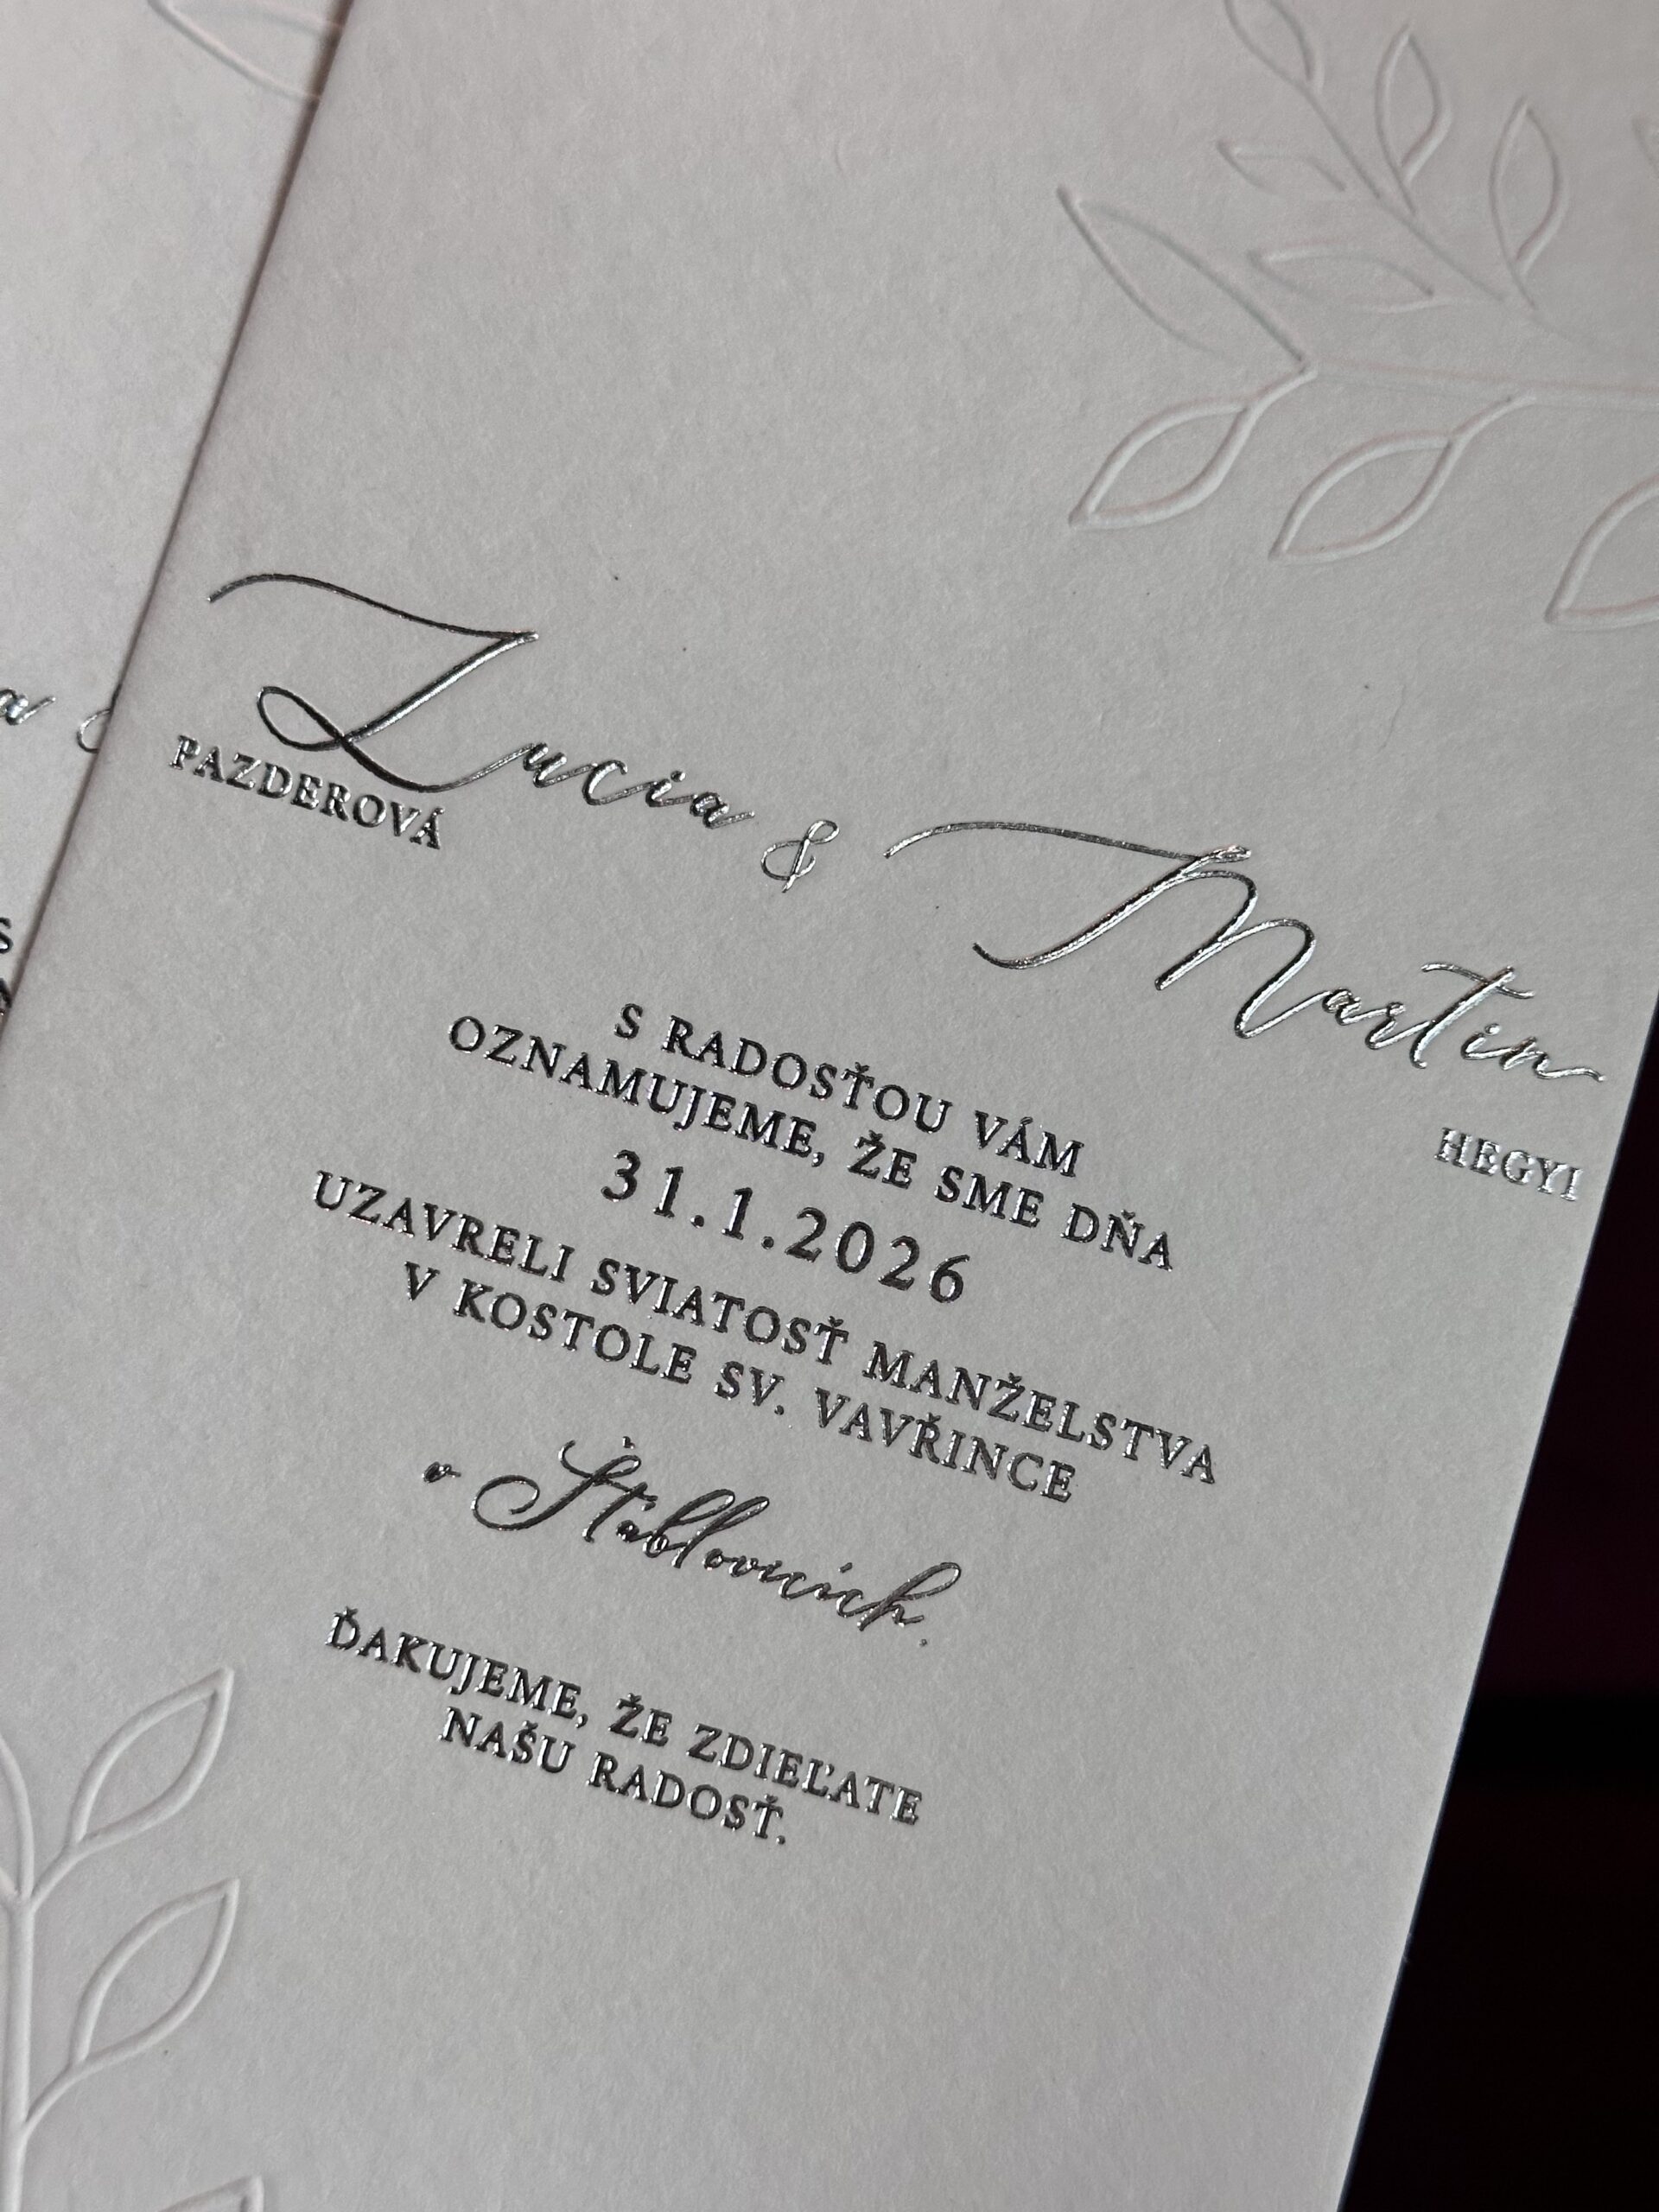 Lucia & Martin
PAZDEROVÁ
HEGYI
S RADOSŤOU VÁM
OZNAMUJEME, ŽE SME DŇA
31.1.2026
UZAVRELI SVIATOSŤ MANŽELSTVA
V KOSTOLE SV. VAVŘINCE
v Štáblovicích.
ĎAKUJEME, ŽE ZDIEĽATE
NAŠU RADOSŤ.